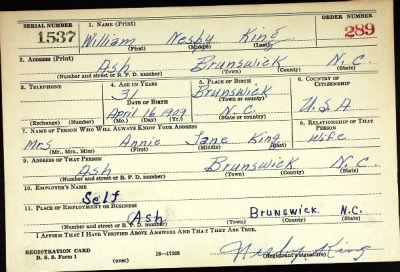 SERIAL NUMBER 1. NAME (Print) ORDER NUMBER
1537 William Nesby King 289
(First) (Middle) (Last)
2. ADDRESS (Print)
Ash Brunswick N.C.
(Number and street or R. F. D. number) (Town) (County) (State)
3. TELEPHONE 4. AGE IN YEARS 5. PLACE OF BIRTH 6. COUNTRY OF CITIZENSHIP
31 Brunswick
DATE OF BIRTH (Town or county)
April 16 1909 N.C. U.S.A
(Exchange) (Number) (Mo.) (Day) (Yr.) (State or country)
7. NAME OF PERSON WHO WILL ALWAYS KNOW YOUR ADDRESS 8. RELATIONSHIP OF THAT PERSON
Mrs Annie Jane King Wife
(Mr., Mrs., Miss) (First) (Middle) (Last)
9. ADDRESS OF THAT PERSON
Ash Brunswick N.C.
(Number and street or R. F. D. number) (Town) (County) (State)
10. EMPLOYER'S NAME
Self
11. PLACE OF EMPLOYMENT OR BUSINESS
Ash Brunswick N.C.
(Number and street or R. F. D. number) (Town) (County) (State)
I AFFIRM THAT I HAVE VERIFIED ABOVE ANSWERS AND THAT THEY ARE TRUE.
REGISTRATION CARD
D. S. S. Form 1 (over) 16—17105 (Registrant's signature)
Nesby King